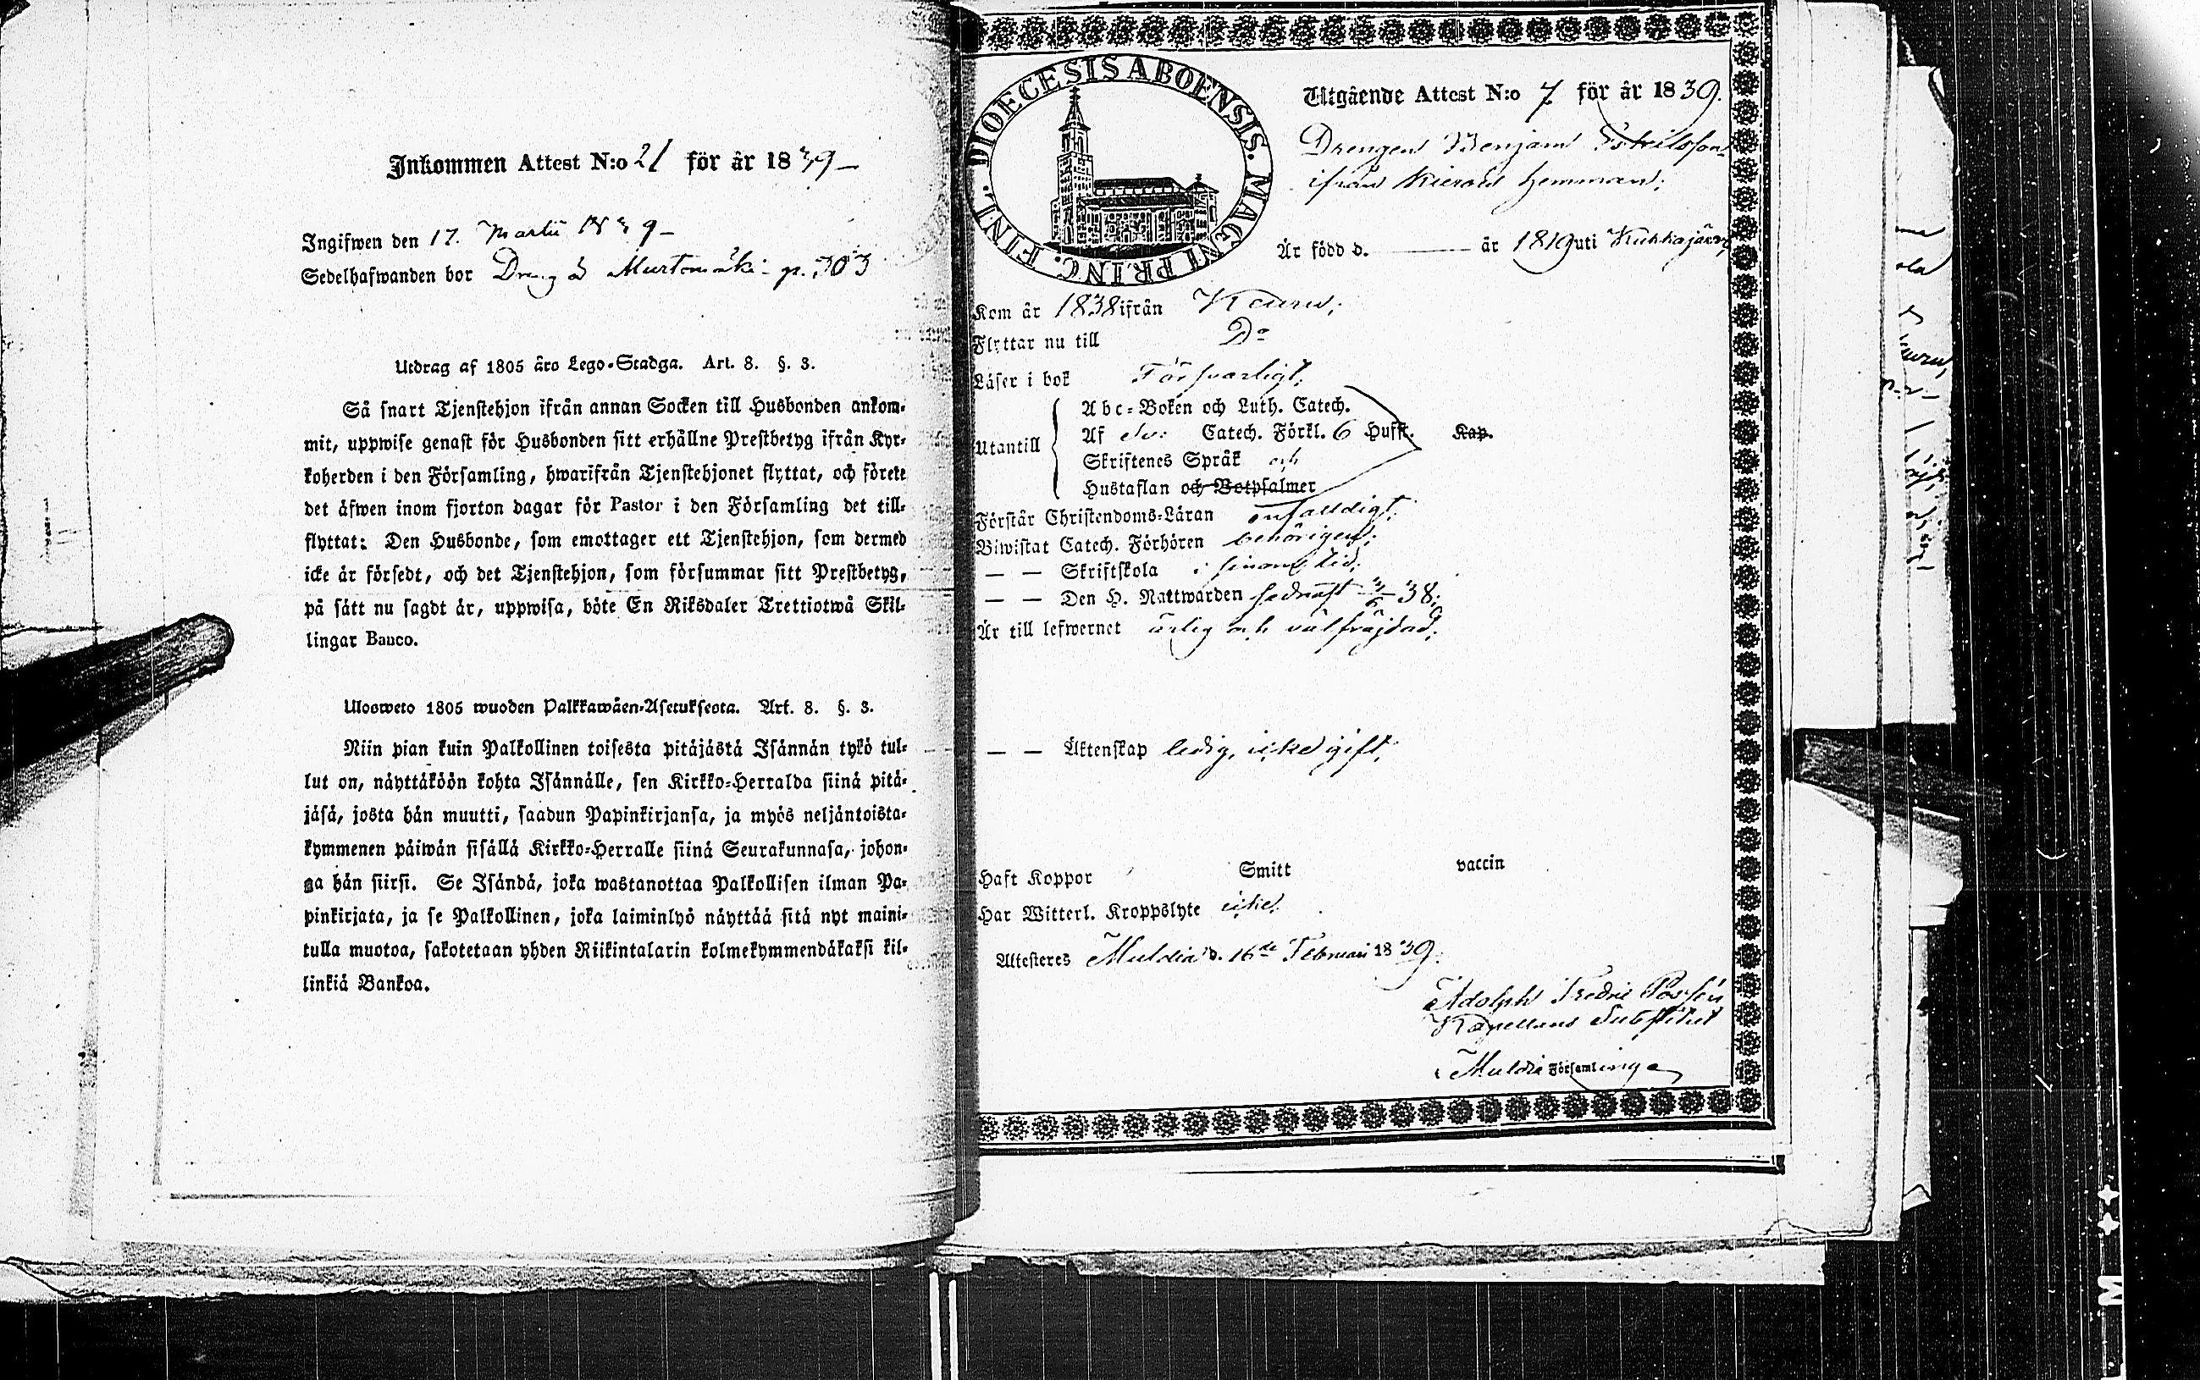 Inkommen Attest N:o 21 för år 1839
Ingifwen den 17. Martii 1839
Sedelhafwanden bor Dreng å Murtomäki p. 303
Utdrag af 1805 års Lego-Stadga. Art. 8. §. 3.
Så snart Tjenstehjon ifrån annan Socken till Husbonden ankom-
mit, uppwise genast för Husbonden sitt erhållne Prestbetyg ifrån Kyr-
koherden i den Församling, hwarifrån Tjenstehjonet flyttat, och förete
det äfwen inom fjorton dagar för Pastor i den Församling det till-
flyttat: Den Husbonde, som emottager ett Tjenstehjon, som dermed
icke är försedt, och det Tjenstehjon, som försummar sitt Prestbetyg,
på sätt nu sagdt är, uppwisa, böte En Riksdaler Trettiotwå Skil-
lingar Banco.
Ulosweto 1805 wuoden Palkkawäen-Asetuksesta. Art. 8. §. 3.
Niin pian kuin Palkollinen toisesta pitäjästä Isännän tykö tul-
lut on, näyttäköön kohta Isännälle, sen Kirkko-Herralda siinä pitä-
jäsä, josta hän muutti, saadun Papinkirjansa, ja myös neljäntoista-
kymmenen päiwän sisällä Kirkko-Herralle siinä Seurakunnasa, johon-
ga hän siirsi. Se Isändä, joka wastanottaa Palkollisen ilman Pa-
pinkirjata, ja se Palkollinen, joka laiminlyö näyttää sitä nyt maini-
tulla muotoa, sakotetaan yhden Riikintalarin kolmekymmendäkaksi kil-
linkiä Bankoa.
DIOECESIS ABOENSIS. MAGNI PRINC. FINL.
Utgående Attest N:o 7 för år 1839.
Drengen Benjam
ifrån hemman;
Är född d. år 1819 uti Kuhkajärvi
Kom år 1838 ifrån Keuru;
Flyttar nu till Do
Läser i bok Försvarligt;
Utantill
Abc-Boken och Luth. Catech.
Af Sv: Catech. Förkl. 6 Hufst. Kap.
Skriftenes Språk och
Hustaflan och Botpsalmer
Förstår Christendoms-Läran enfalldigt;
Biwistat Catech. Förhören behörigen;
— — Skriftskola i sinom tid;
— — Den H. Nattwarden sednast 38;
Är till lefwernet ärlig och välfräjdad;
— — Äktenskap ledig, icke gift;
Haft Koppor Smitt vaccin
Har Witterl. Kroppslyte icke.
Attesteres Muldia d. 16de Februari 1839.
Adolph Fredric
Kapellans Substitut
i Muldia Församlinge